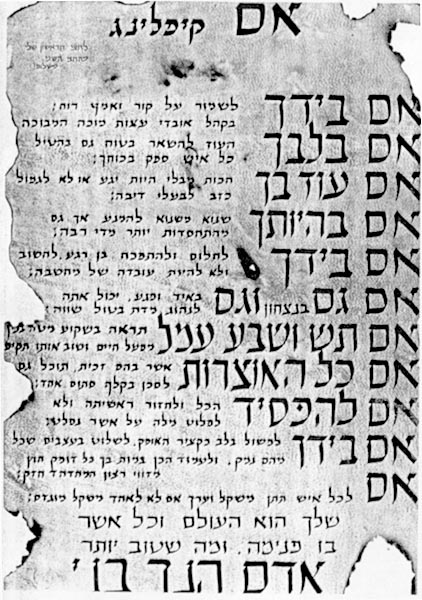 אם קיפלינג
אם בידך לשמור על קור ואמץ רוח;
בקהל אובדי עצות מוכה המבוכה
אם בלבך העוז להשאר בטוח גם בהטיל
כל איש ספק בכוחך;
אם עוד בך הכוח מבלי היות יגע או לא לגמול
כזב לבעלי דיבה;
אם בהיותך שנוא משנוא להמנע אך גם
מהתחסדות יותר מדי רבה;
אם בידך לחלום ולהתפכח בן רגע, לחשוב
ולא להיות עובדה של מחשבה;
אם גם בנצחון וגם באיד ופגע, יכול אתה
לנהוג מדת בטול שווה;
אם תש ושבע עמל תראה בשקוע
מפעל חיים ושוב אותו תקים
אם כל האוצרות אשר בהם זכית, תוכל גם
לסכן בקלף סתום אחד;
אם להפסיד הכל ולחזור ראשיתה ולא
לפלוט מלה על אשר
אם בידך למשול בלב בקציר האופק, לשלוט בעצבים שכל
מהם נמק, ולעמוד הכן במות בך כל דופק חוץ
מזווי רצון המהדהד חזק;
אם לכל איש תתן משקל וערך אם לא לאחד משקל מוגזם;
שלך הוא העולם וכל אשר
בו פנימה, ומה שטוב יותר
אדם הנך בני